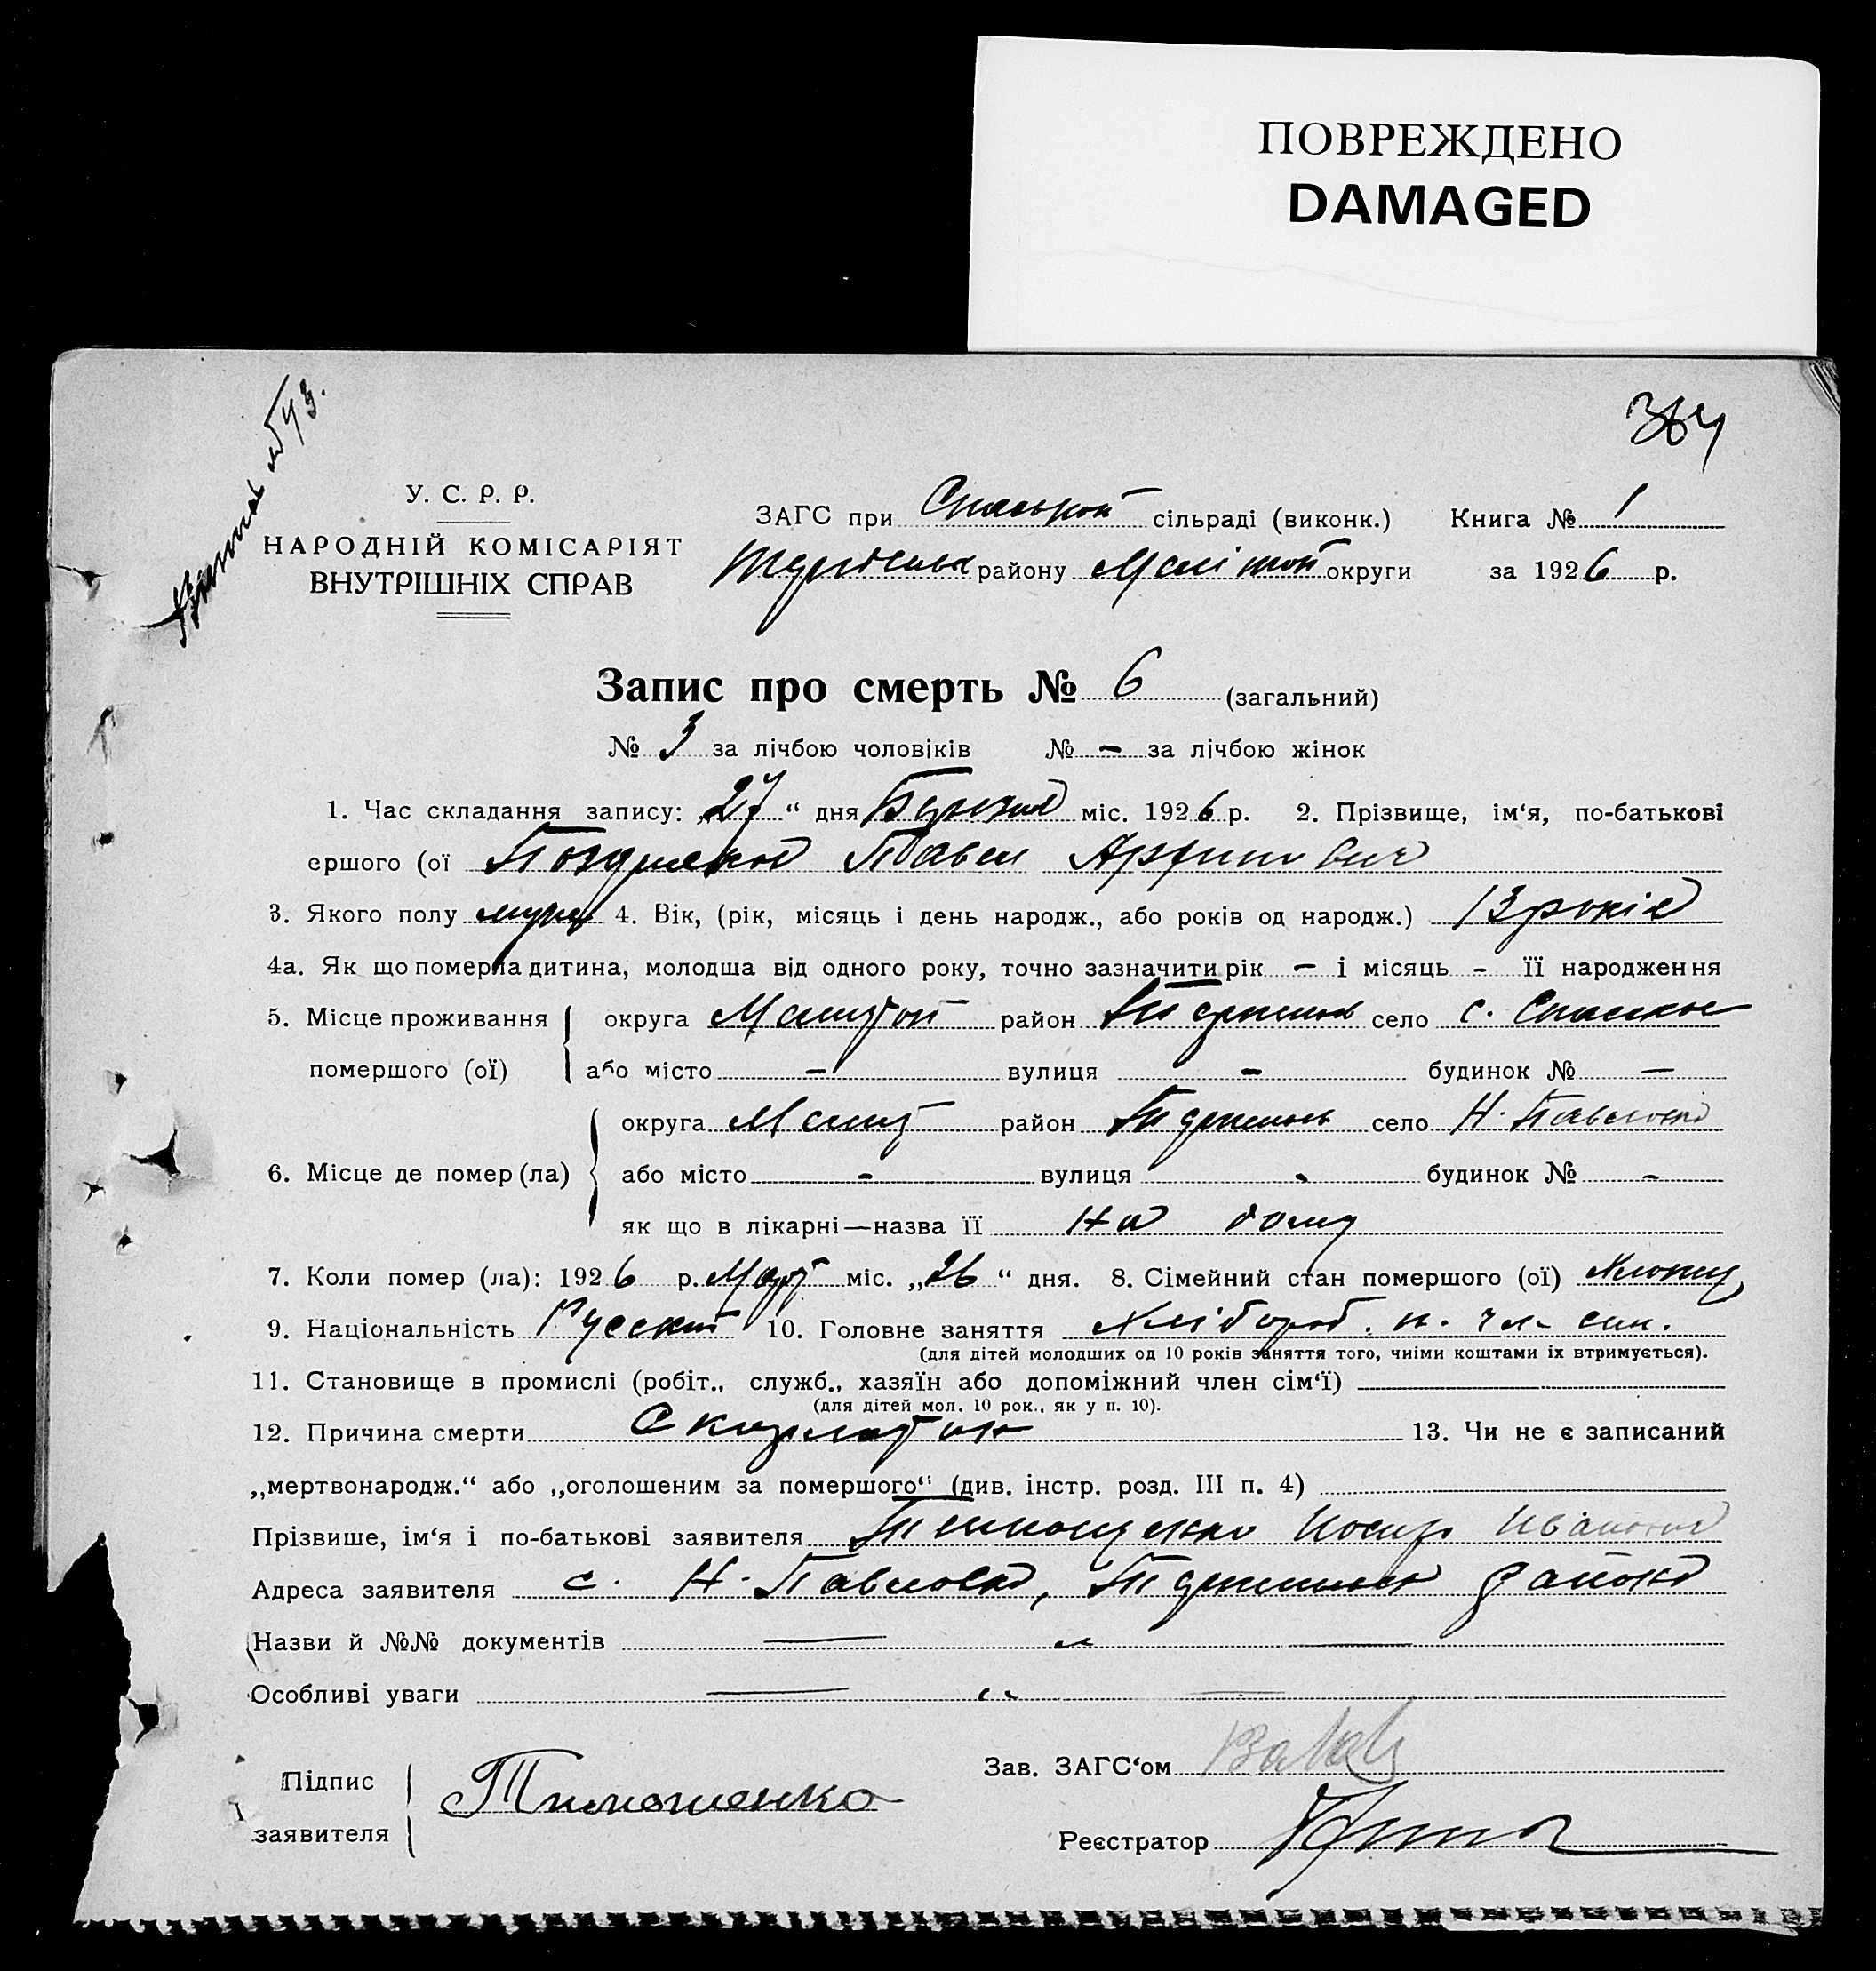 ПОВРЕЖДЕНО
DAMAGED
У. С. Р. Р.
НАРОДНІЙ КОМІСАРІЯТ
ВНУТРІШНІХ СПРАВ
ЗАГС при Спаській сільраді (виконк.) Книга № 1
району Меліт округи за 1926 р.
Запис про смерть № 6 (загальний)
№ 3 за лічбою чоловіків № – за лічбою жінок
1. Час складання запису: „27“ дня Березня міс. 1926 р. 2. Прізвище, ім‘я, по-батькові
ершого (ої Павел
3. Якого полу 4. Вік, (рік, місяць і день народж., або років од народж.) 13 років
4а. Як що померла дитина, молодша від одного року, точно зазначити рік – і місяць – її народження
5. Місце проживання округа Мелитоп район село с. Спаское
помершого (ої) або місто – вулиця – будинок № –
округа Мелит район село Н. Павловка
6. Місце де помер (ла) або місто – вулиця - будинок № –
як що в лікарні—назва її На дому
7. Коли помер (ла): 1926 р. Март міс. „26“ дня. 8. Сімейний стан помершого (ої) Хлопец
9. Національність Русский 10. Головне заняття Хлібороб. н. чл. сим.
(для дітей молодших од 10 років заняття того, чиїми коштами їх втримується).
11. Становище в промислі (робіт., служб., хазяїн або допоміжний член сім‘ї)
(для дітей мол. 10 рок., як у п. 10).
12. Причина смерти Скарлатин 13. Чи не є записаний
„мертвонародж.“ або „оголошеним за помершого“ (див. інстр. розд. III п. 4)
Прізвише, ім‘я і по-батькові заявителя Тимошенко Иосип Иванович
Адреса заявителя с. Н. Павловка, района
Назви й №№ документів
Особливі уваги
Підпис
заявителя
Тимошенко
Зав. ЗАГС‘ом
Реєстратор